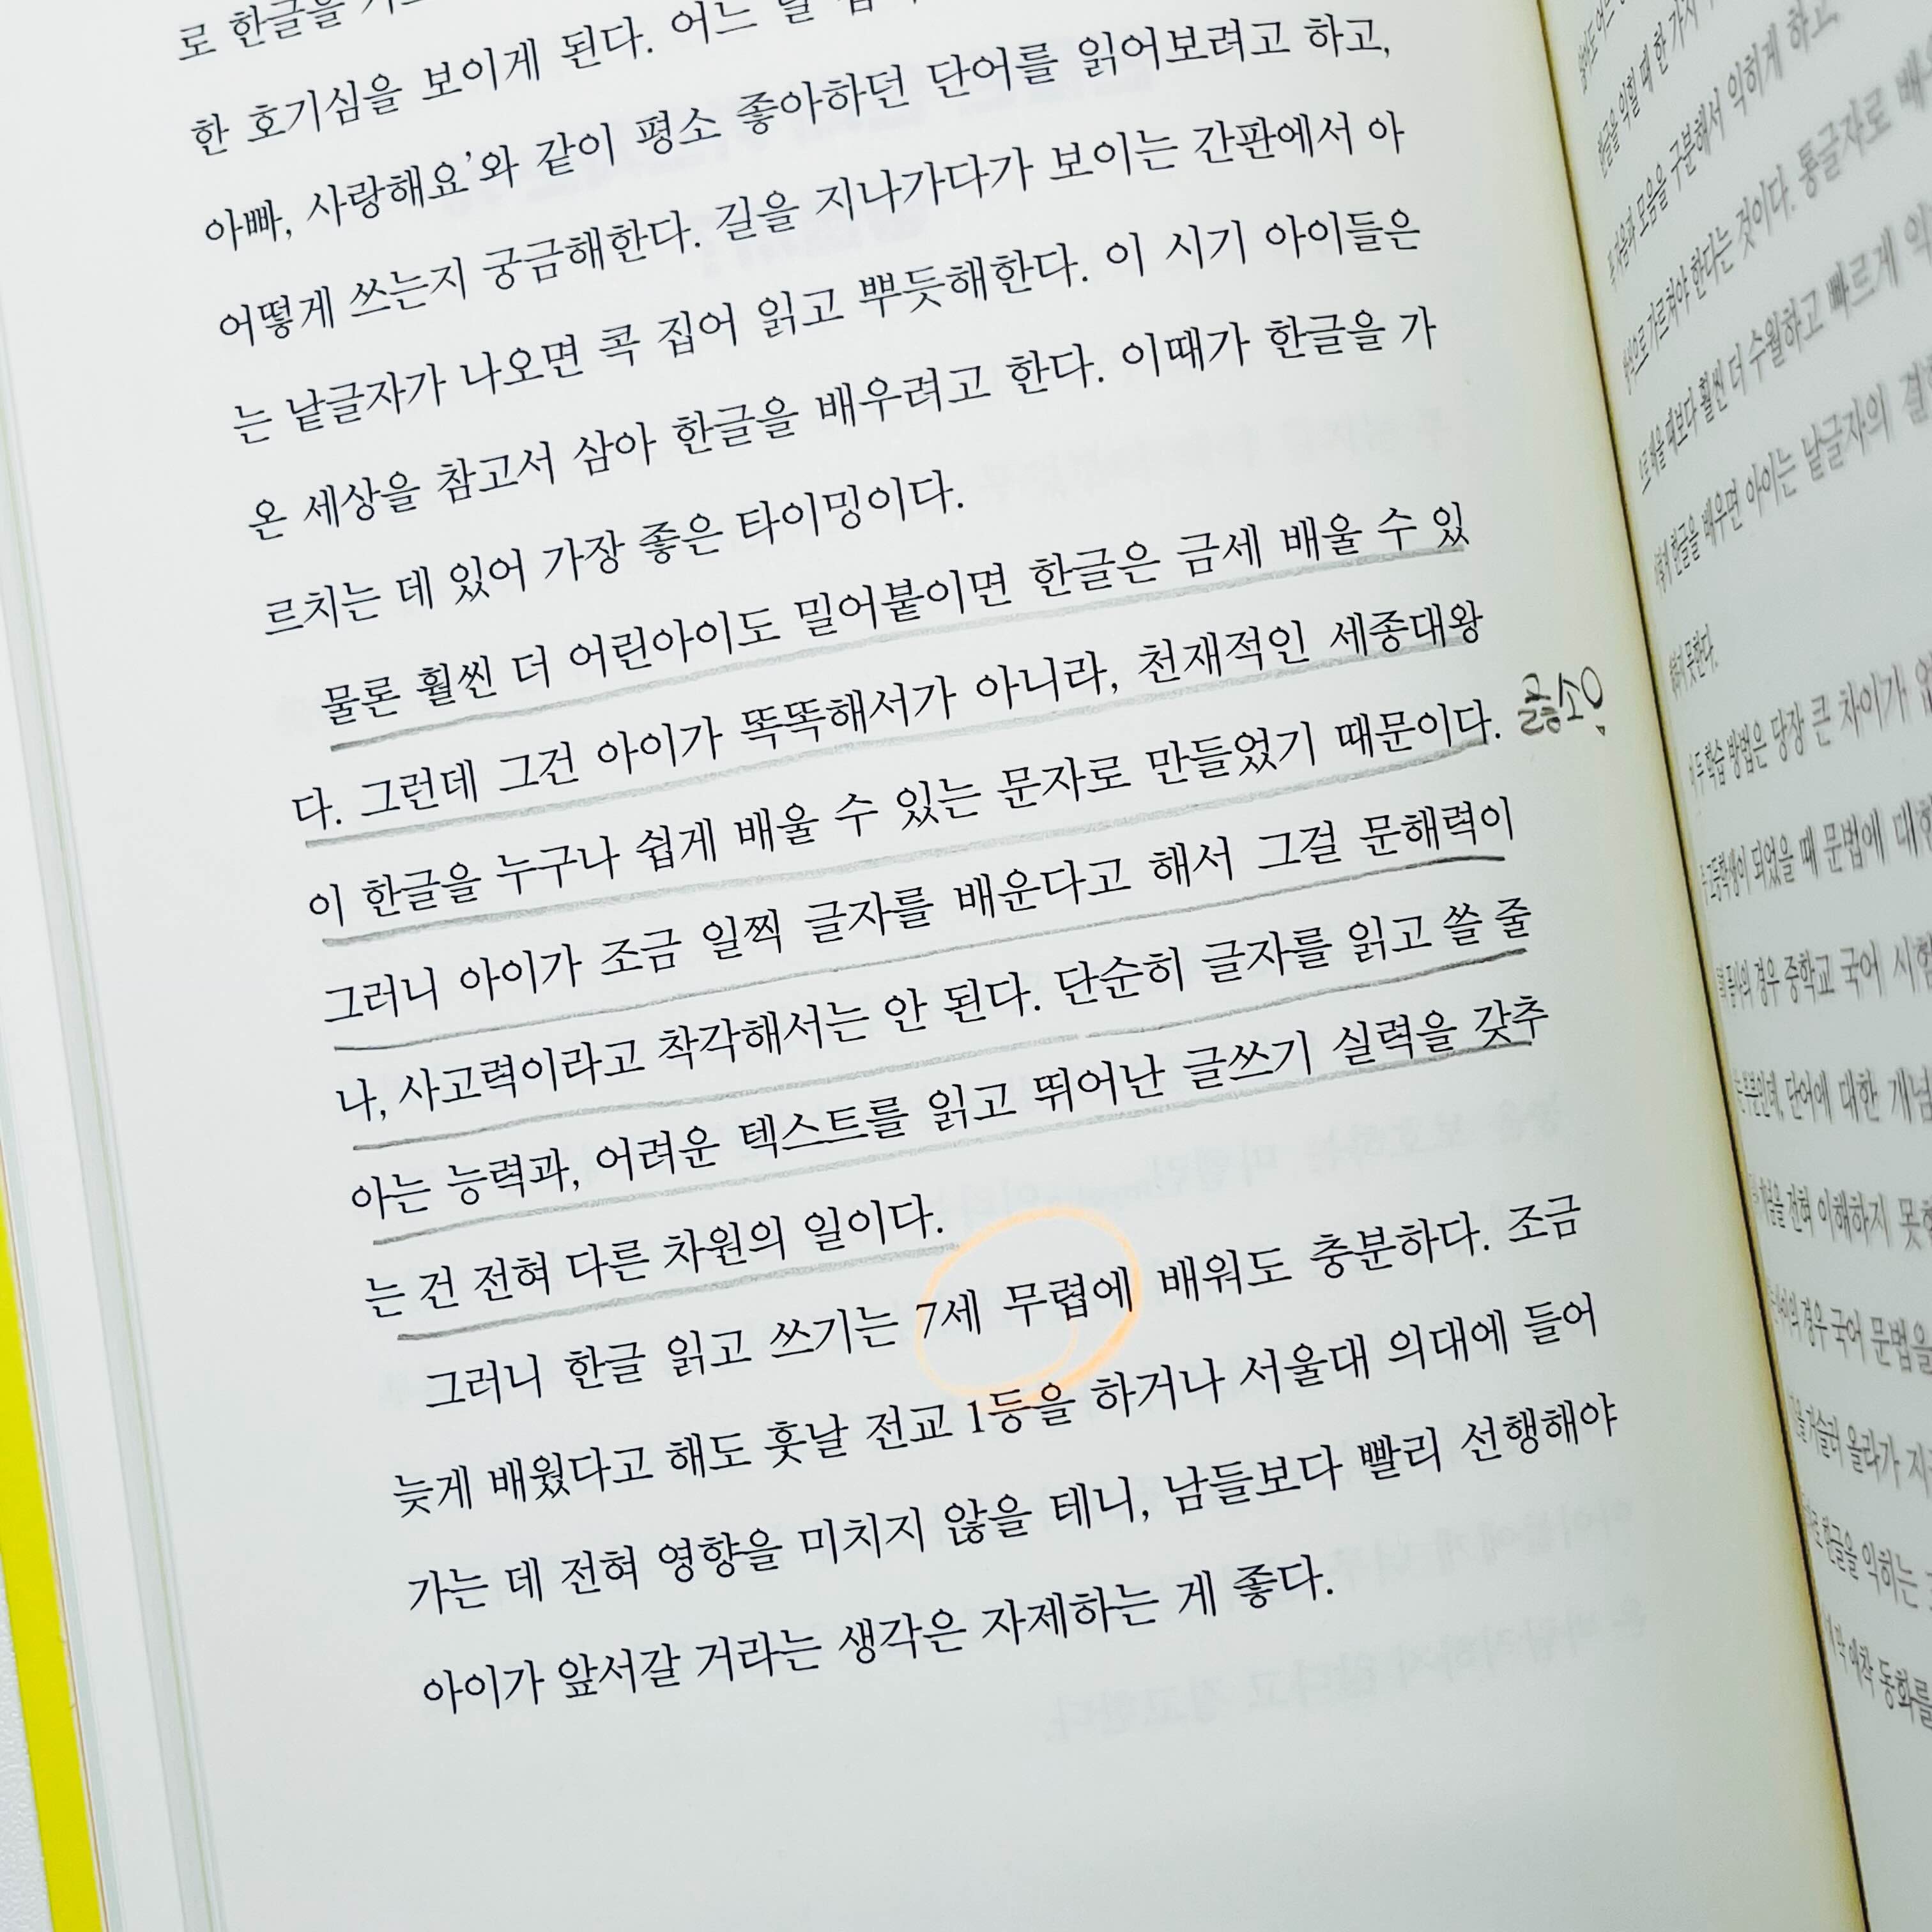 로 한글을
한 호기심을 보이게 된다. 어느 날
아빠, 사랑해요’와 같이 평소 좋아하던 단어를 읽어보려고 하고,
어떻게 쓰는지 궁금해한다. 길을 지나가다가 보이는 간판에서 아
는 낱글자가 나오면 콕 집어 읽고 뿌듯해한다. 이 시기 아이들은
온 세상을 참고서 삼아 한글을 배우려고 한다. 이때가 한글을 가
르치는 데 있어 가장 좋은 타이밍이다.
물론 훨씬 더 어린아이도 밀어붙이면 한글은 금세 배울 수 있
다. 그런데 그건 아이가 똑똑해서가 아니라, 천재적인 세종대왕
이 한글을 누구나 쉽게 배울 수 있는 문자로 만들었기 때문이다.
그러니 아이가 조금 일찍 글자를 배운다고 해서 그걸 문해력이
나, 사고력이라고 착각해서는 안 된다. 단순히 글자를 읽고 쓸 줄
아는 능력과, 어려운 텍스트를 읽고 뛰어난 글쓰기 실력을 갖추
는 건 전혀 다른 차원의 일이다.
그러니 한글 읽고 쓰기는 7세 무렵에 배워도 충분하다. 조금
늦게 배웠다고 해도 훗날 전교 1등을 하거나 서울대 의대에 들어
가는 데 전혀 영향을 미치지 않을 테니, 남들보다 빨리 선행해야
아이가 앞서갈 거라는 생각은 자제하는 게 좋다.
한글을 익힐 때 한 가지
자음과 모음을 구분해서 익히게 하고,
가르쳐야 한다는 것이다. 통글자로
때보다 훨씬 더 수월하고 빠르게
한글을 배우면 아이는 낱글자의
못한다.
이 두 학습 방법은 당장 큰 차이가
되었을 때 문법에
경우 중학교 국어
단어에 대한 개념
전혀 이해하지
경우 국어 문법을
거슬러 올라가
한글을 익히는
동화를